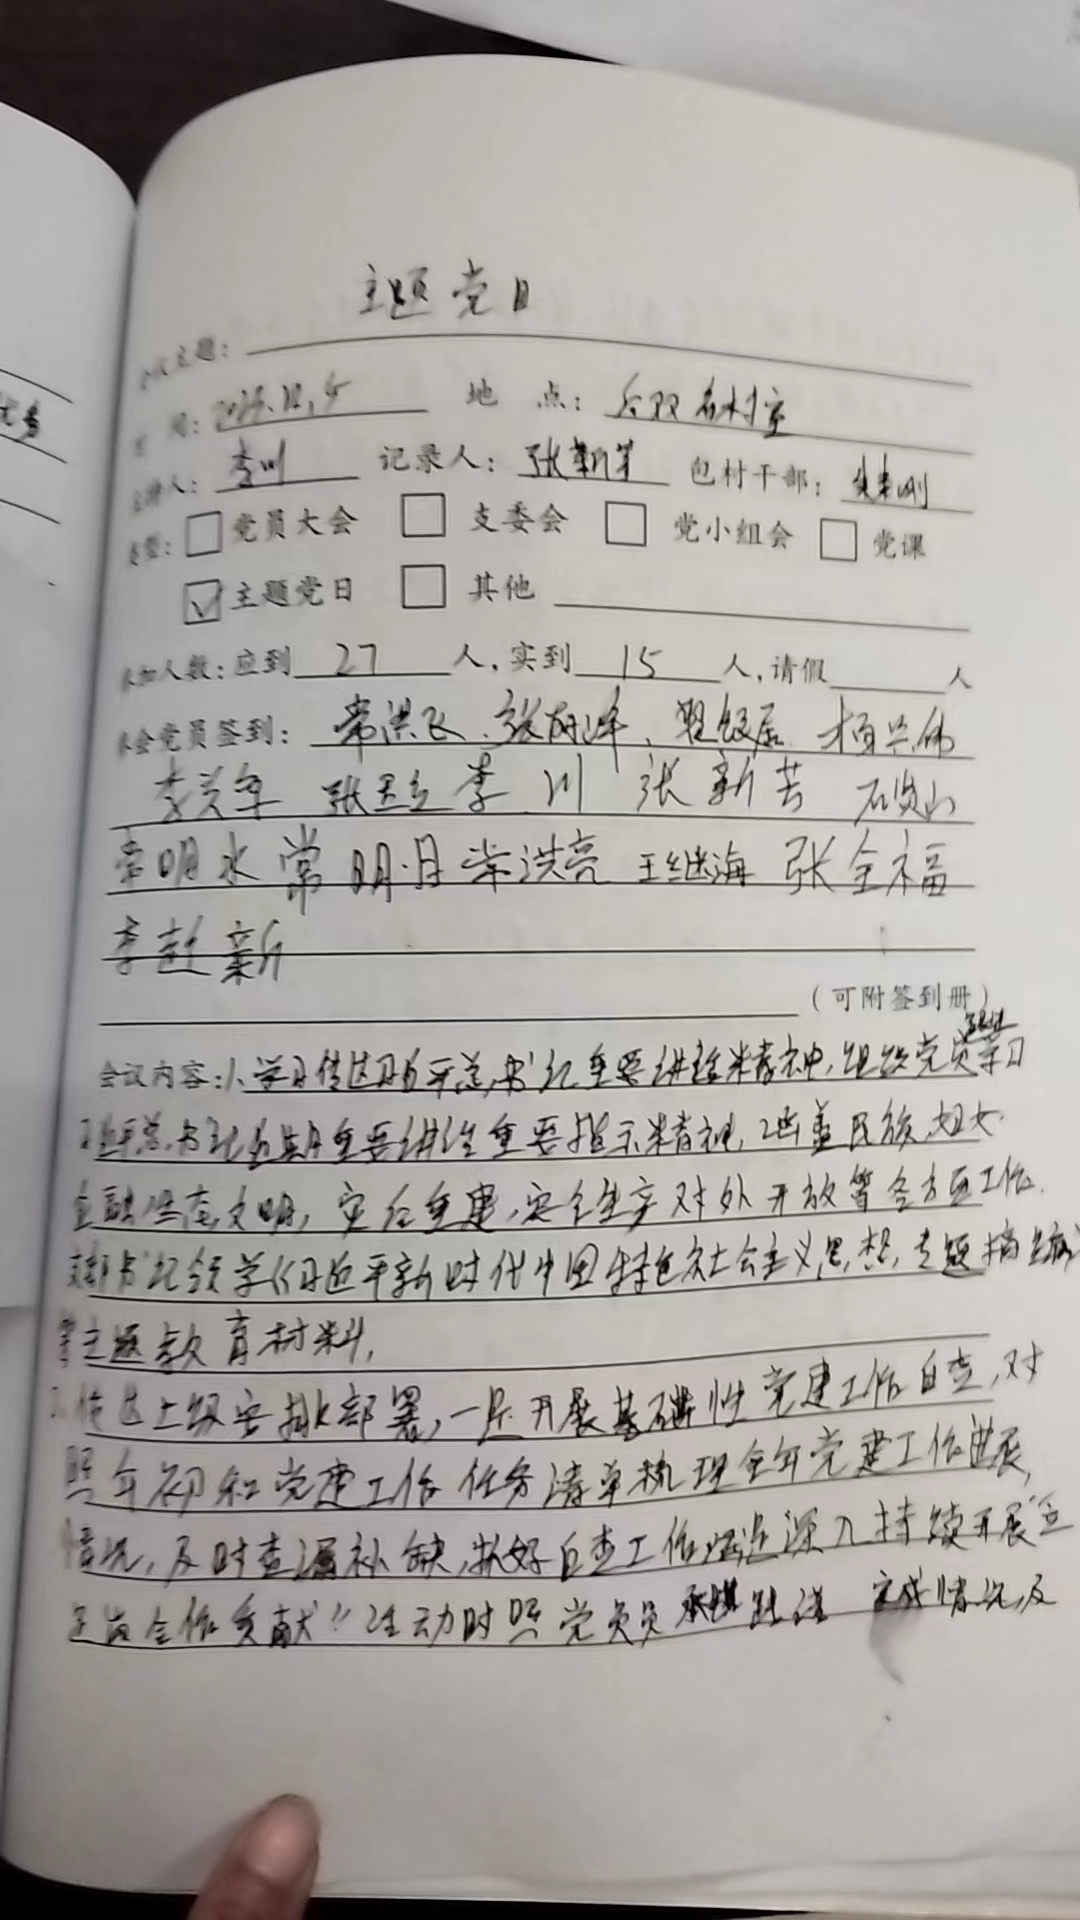 主题党日
会议主题：
间：2025.12.5 地 点：后双 村室
主持人：李川 记录人：张新 包村干部：
类型：党员大会 支委会 党小组会 党课
主题党日 其他
参加人数：应到 27 人，实到 15 人，请假 人
参会党员签到：常洪飞、张 峰、 居 伟
李兴军 张 李川 张新芳 石 山
常明水 常明月 常洪亮 王继海 张全福
李赶新
（可附签到册）
会议内容：1、学习传达习近平总书记重要讲话精神，组织党员学习
习近平总书记近期重要讲话重要指示精神，涵盖民族、妇女
金融 文明，灾后重建，安全生产对外开放等全方面工作
支部书记领学《习近平新时代中国特色社会主义思想，专题摘编》
等主题教育材料，
传达上级安排部署，一是开展基础性党建工作自查，对
照年初和党建工作任务清单梳理全年党建工作进展
情况，及时查漏补缺，抓好自查工作 深入持续开展"
作贡献"活动时照党员 完成情况及